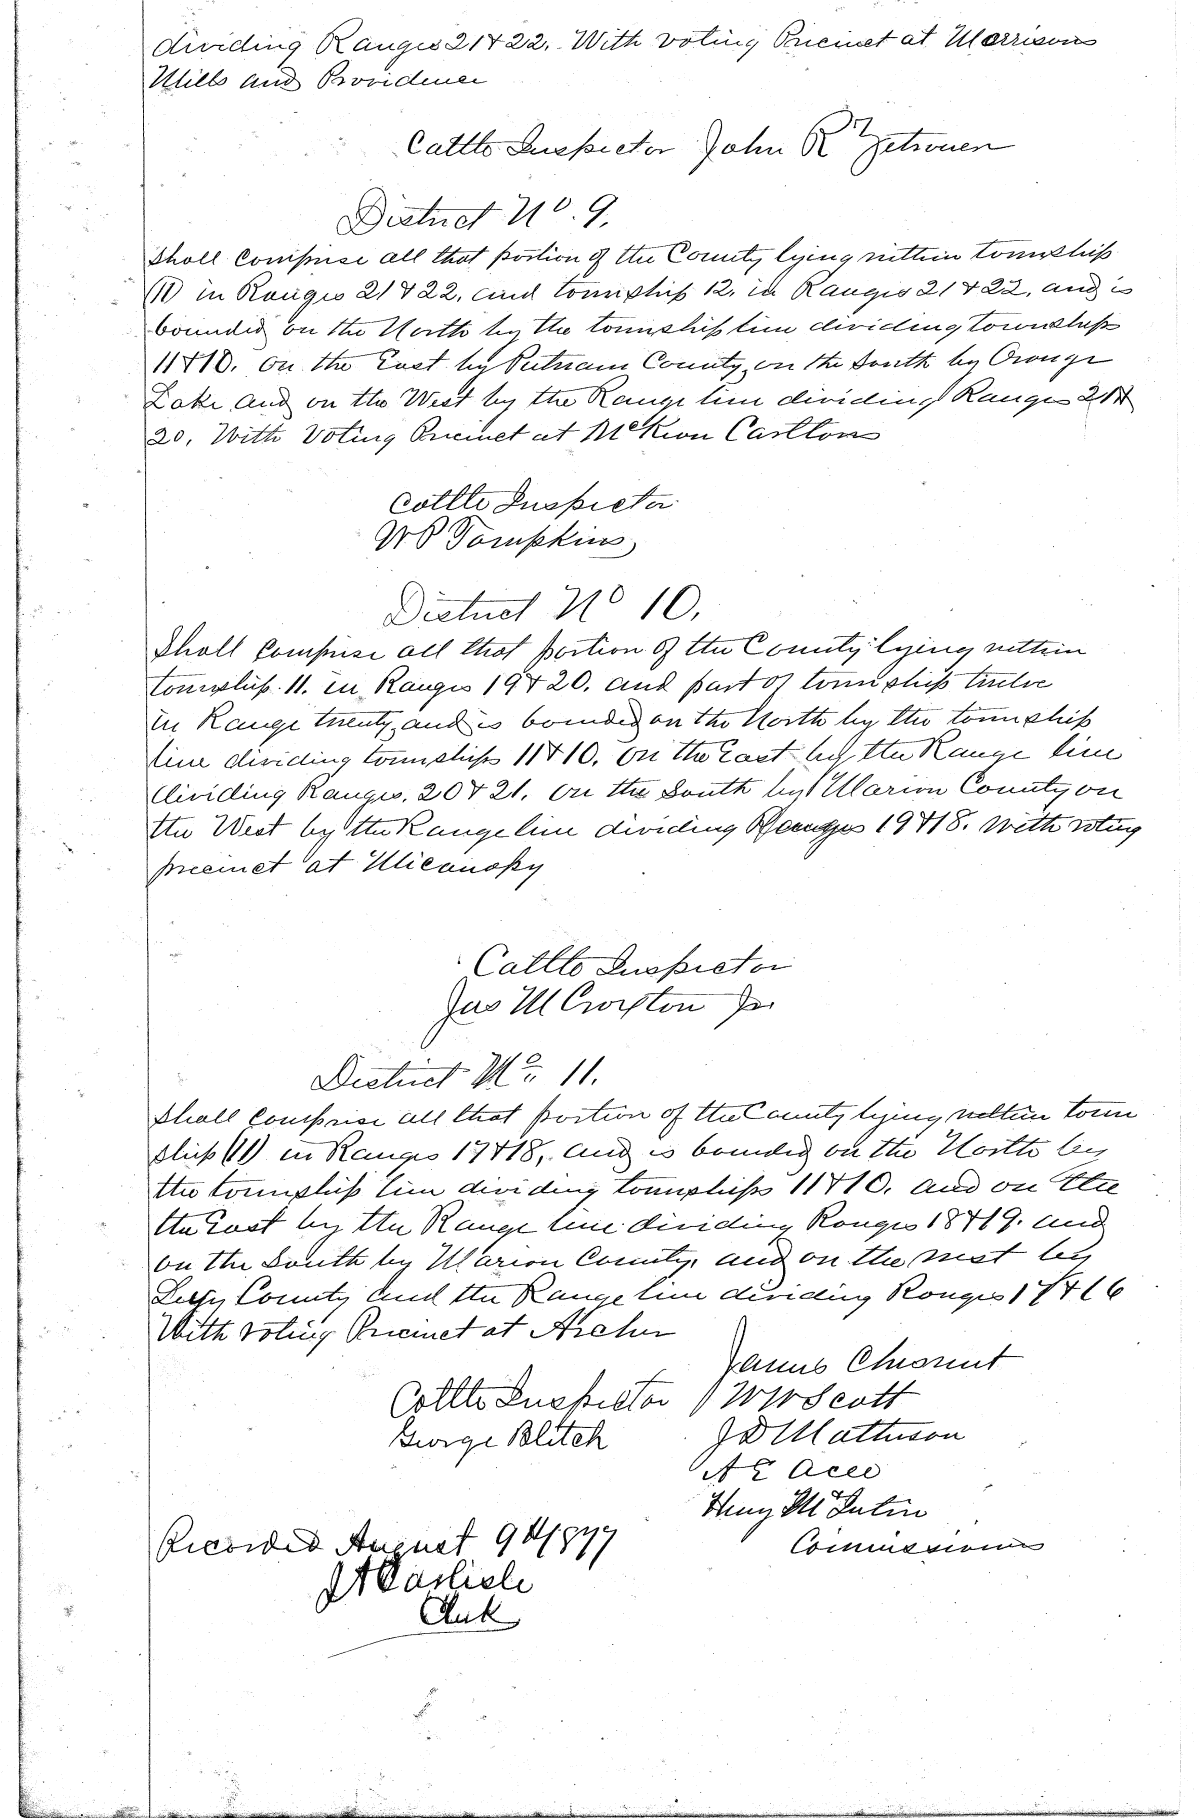 dividing Ranges 21 & 22, With voting Precinct at Morrisons
Mills and Providence
Cattle Inspector John R Zetrouer
District No. 9.
Shall comprise all that portion of the County lying within township
11 in Ranges 21 & 22, and township 12, in Ranges 21 & 22, and is
bounded on the North by the township line dividing townships
11 & 10. on the East by Putnam County, on the South by Orange
Lake and on the West by the Range line dividing Ranges 21 &
20, With Voting Precinct at Carlton
Cattle Inspector
Tompkins
District No 10.
Shall comprise all that portion of the County lying within
township 11. in Ranges 19 & 20. and part of township twelve
in Range twenty, and is bounded on the North by the township
line dividing townships 11 & 10. on the East by the Range line
dividing Ranges. 20 & 21. on the South by Marion County on
the West by the Range line dividing Ranges 19 & 18. With voting
precinct at Micanopy
Cattle Inspector
Jas M Croxton Jr
District No. 11.
Shall comprise all that portion of the County lying within town
ship (11) in Ranges 17 & 18, and is bounded on the North by
the township line dividing townships 11 & 10. and on the
the East by the Range line dividing Ranges 18 & 19. and
on the South by Marion County, and on the west by
Levy County and the Range line dividing Ranges 17 & 16
With voting Precinct at Archer
James Chesnut
Cattle Inspector W W Scott
George Blitch J D Matheson
Henry
Recorded August 9th 1877
Commissioners
J A Carlisle
Clerk